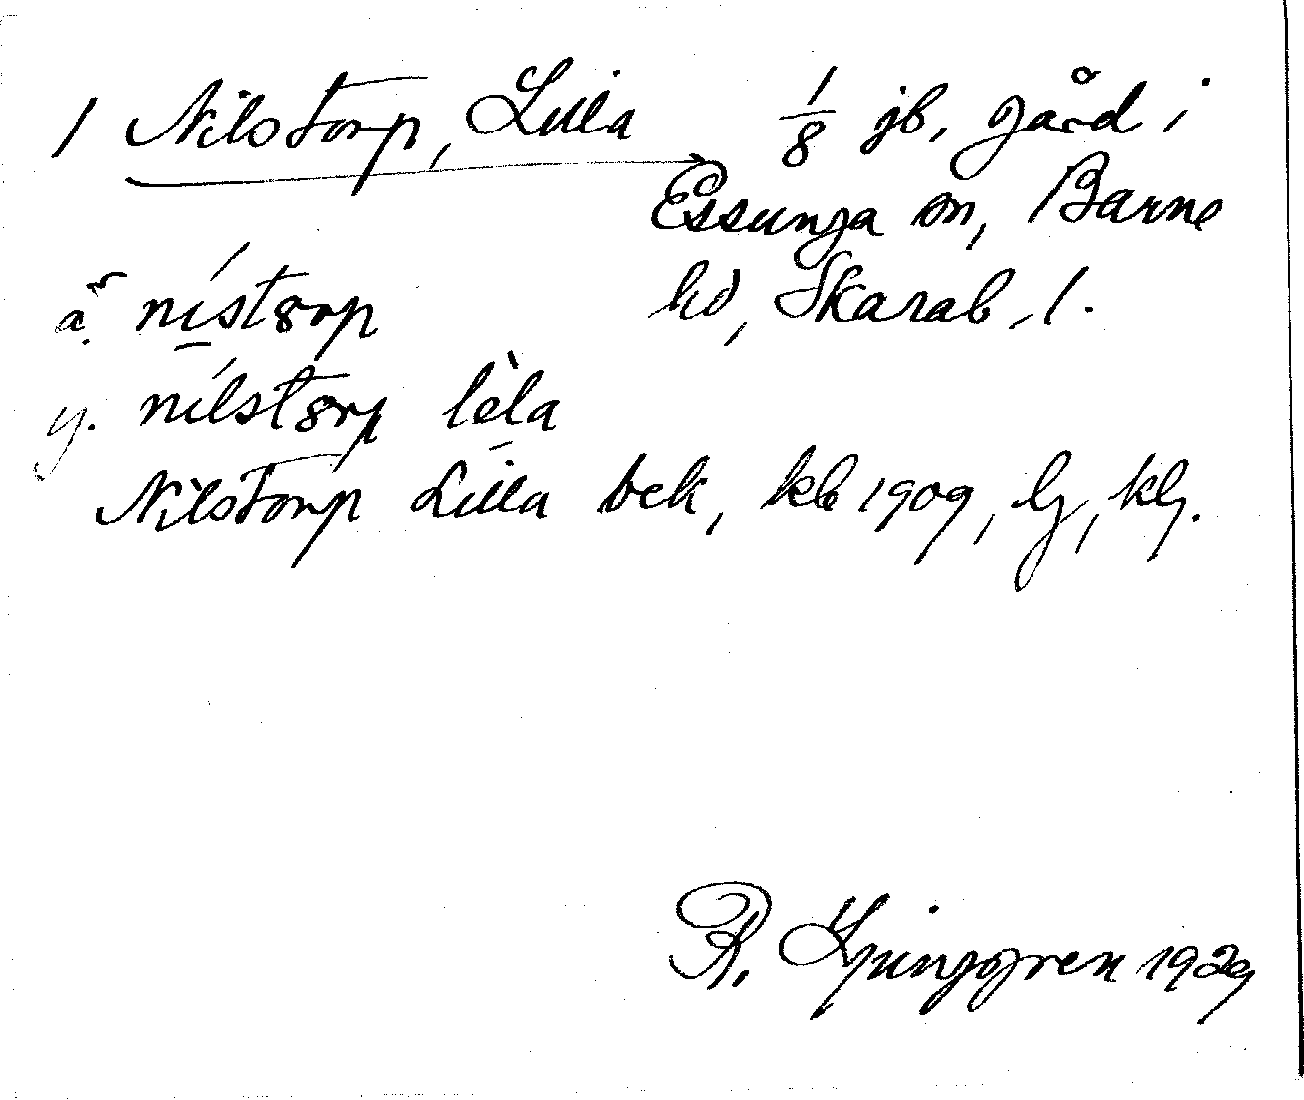 1 Nilstorp, Lilla 1/8 jb, gård i
Essunga sn, Barne
ä. nístorp hd, Skarab. l.
y. nílstorp lèla
Nilstorp Lilla bek, kb 1909, lj, klj.
R. Ljunggren 1929